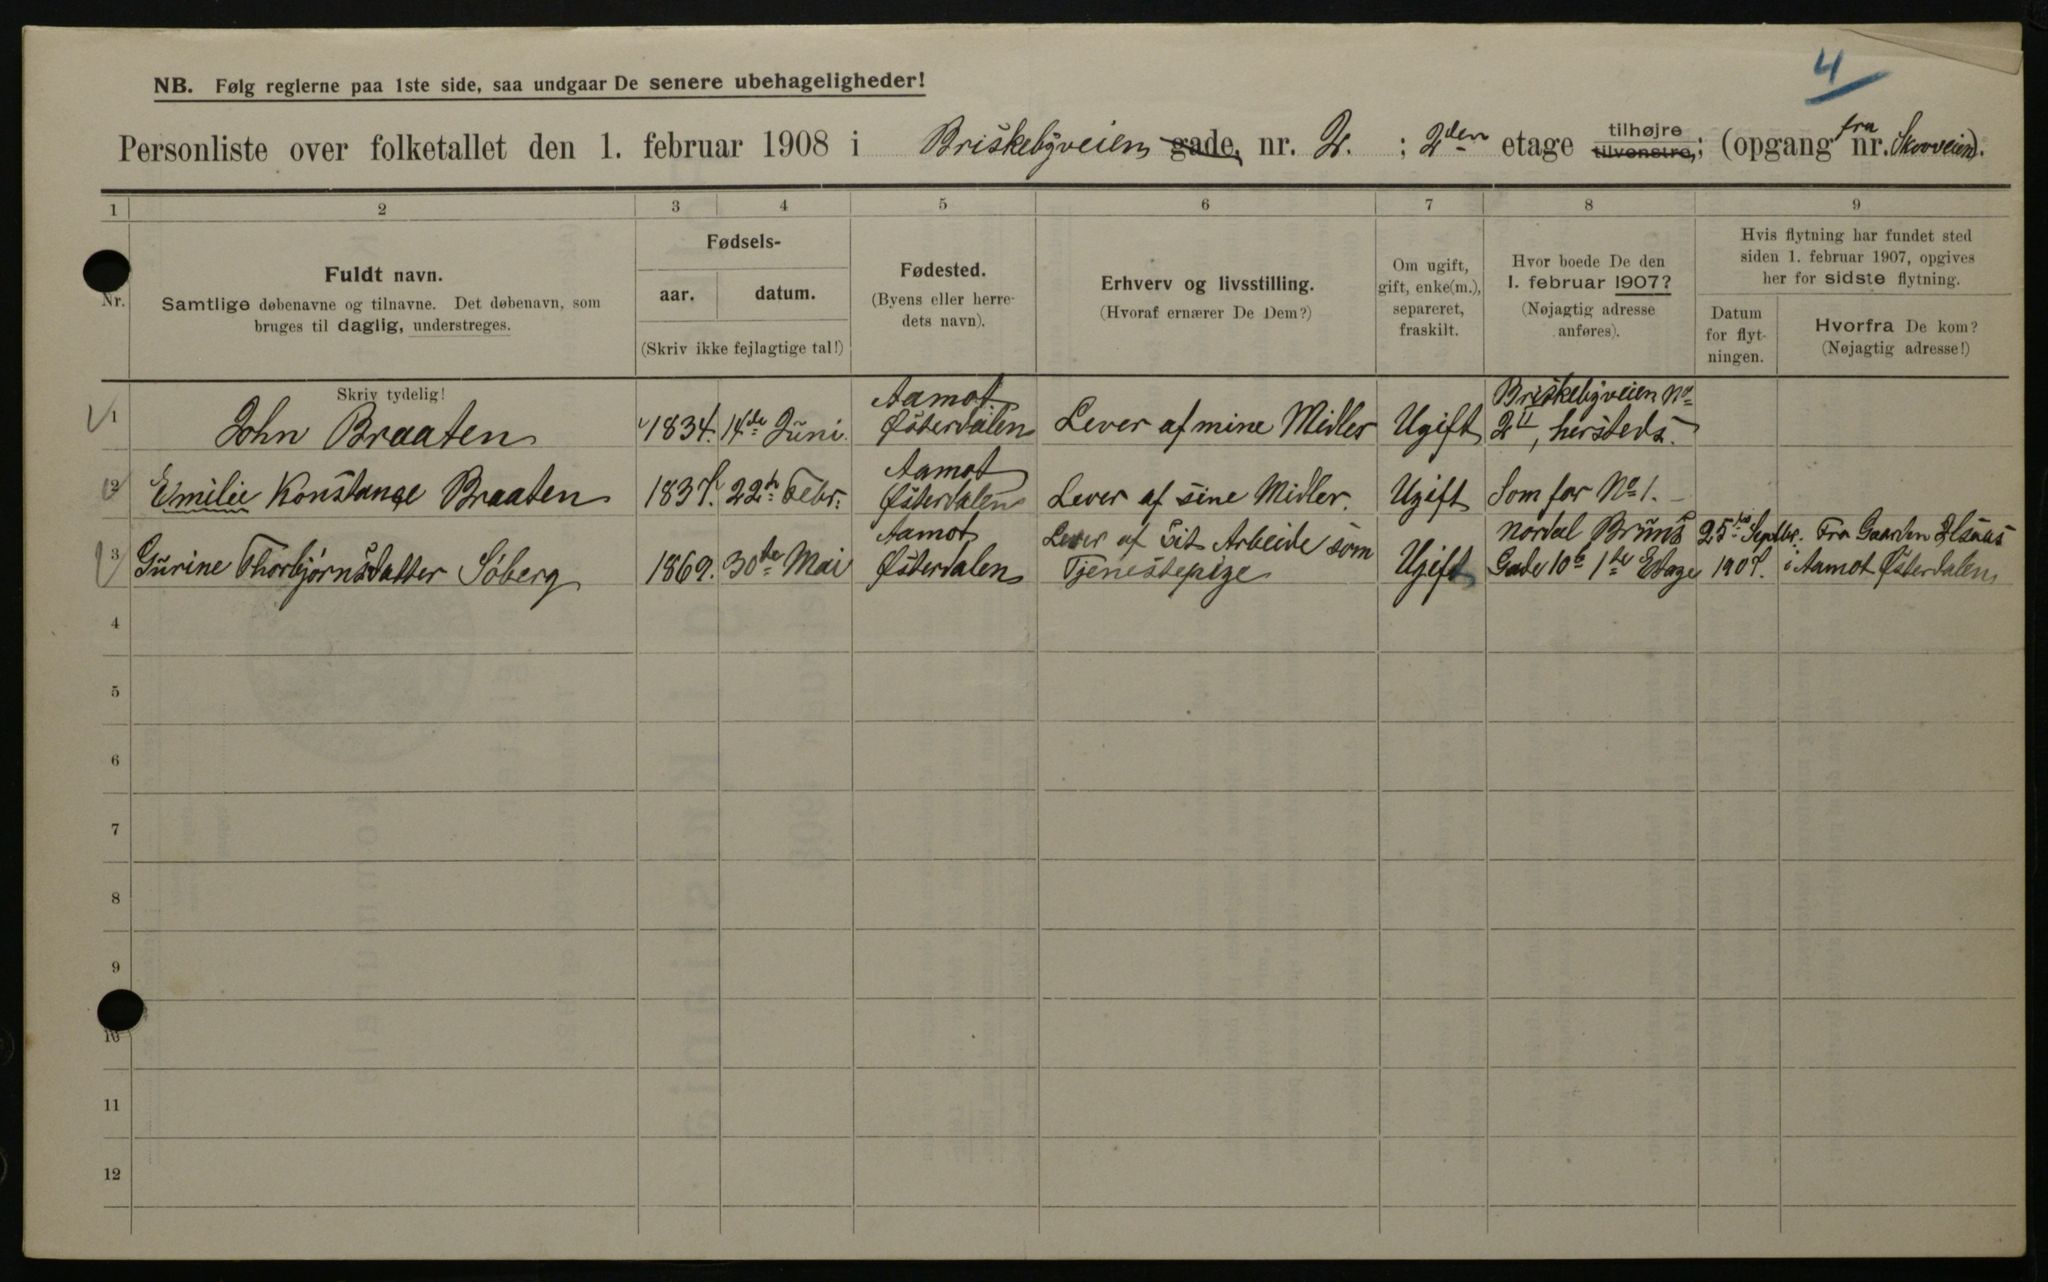 4
NB. Følg reglerne paa 1ste side, saa undgaar De senere ubehageligheder!
Personliste over folketallet den 1. februar 1908 i Briskebyveien gade, nr. 2. ; 2den etage tilhøjre tilvenstre; (opgang fra nr. Skovveien).
1 2 3 4 5 6 7 8 9
Nr.
Fuldt navn.
Samtlige døbenavne og tilnavne. Det døbenavn, som
bruges til daglig, understreges.
Fødsels-
aar. datum.
(Skriv ikke fejlagtige tal!)
Fødested.
(Byens eller herre-
dets navn).
Erhverv og livsstilling.
(Hvoraf ernærer De Dem?)
Om ugift,
gift, enke(m.),
separeret,
fraskilt.
Hvor boede De den
1. februar 1907?
(Nøjagtig adresse
anføres).
Hvis flytning har fundet sted
siden 1. februar 1907, opgives
her for sidste flytning.
Datum
for flyt-
ningen.
Hvorfra De kom?
(Nøjagtig adresse!)
Skriv tydelig!
1 John Braaten 1834. 14de Juni. Aamot Østerdalen Lever af mine Midler Ugift Briskebyveien No 2 II, hersteds.
2 Emilie Konstance Braaten 1837. 22 Febr. Aamot Østerdalen Lever af sine Midler. Ugift Som for No 1.
3 Gurine Thorbjørnsdatter Søberg 1869. 30te Mai Aamot Østerdalen Lever af Sit Arbeide som Tjenestepige Ugift Nordal Bruns Gade 10b 1ste Etage 25 Septbr. 1907. Fra Gaarden i Aamot Østerdalen
4
5
6
7
8
9
10
11
12